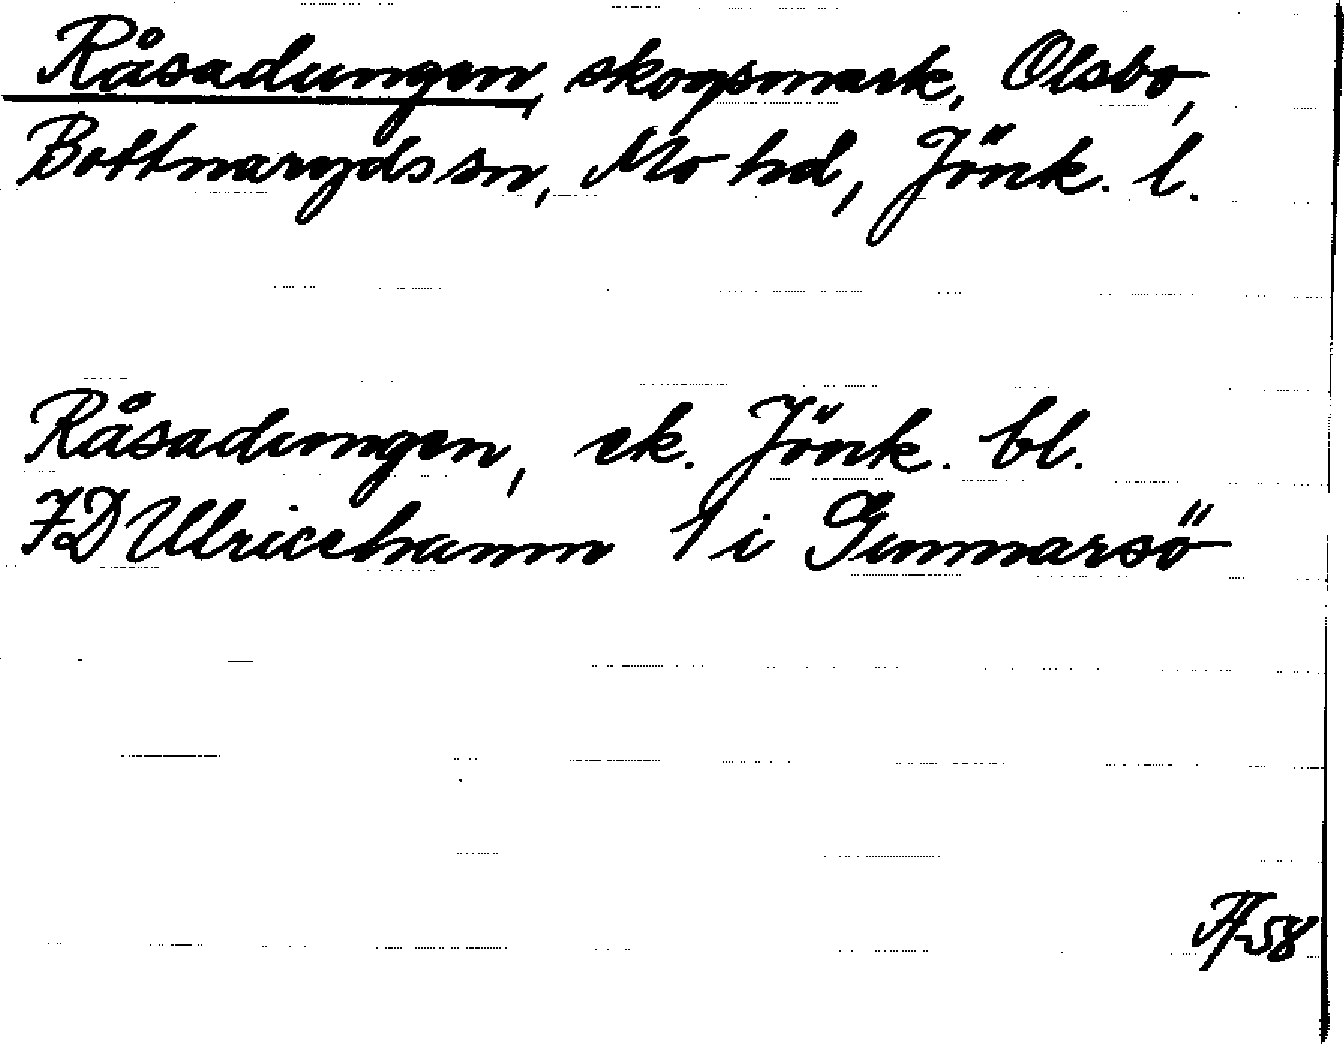 Råsadungen, skogsmark, Olsbo,
Bottnaryds sn, Mo hd, Jönk. l.
Råsadungen, ek. Jönk. bl.
7D Ulricehamn 1 i Gunnarsö
-58